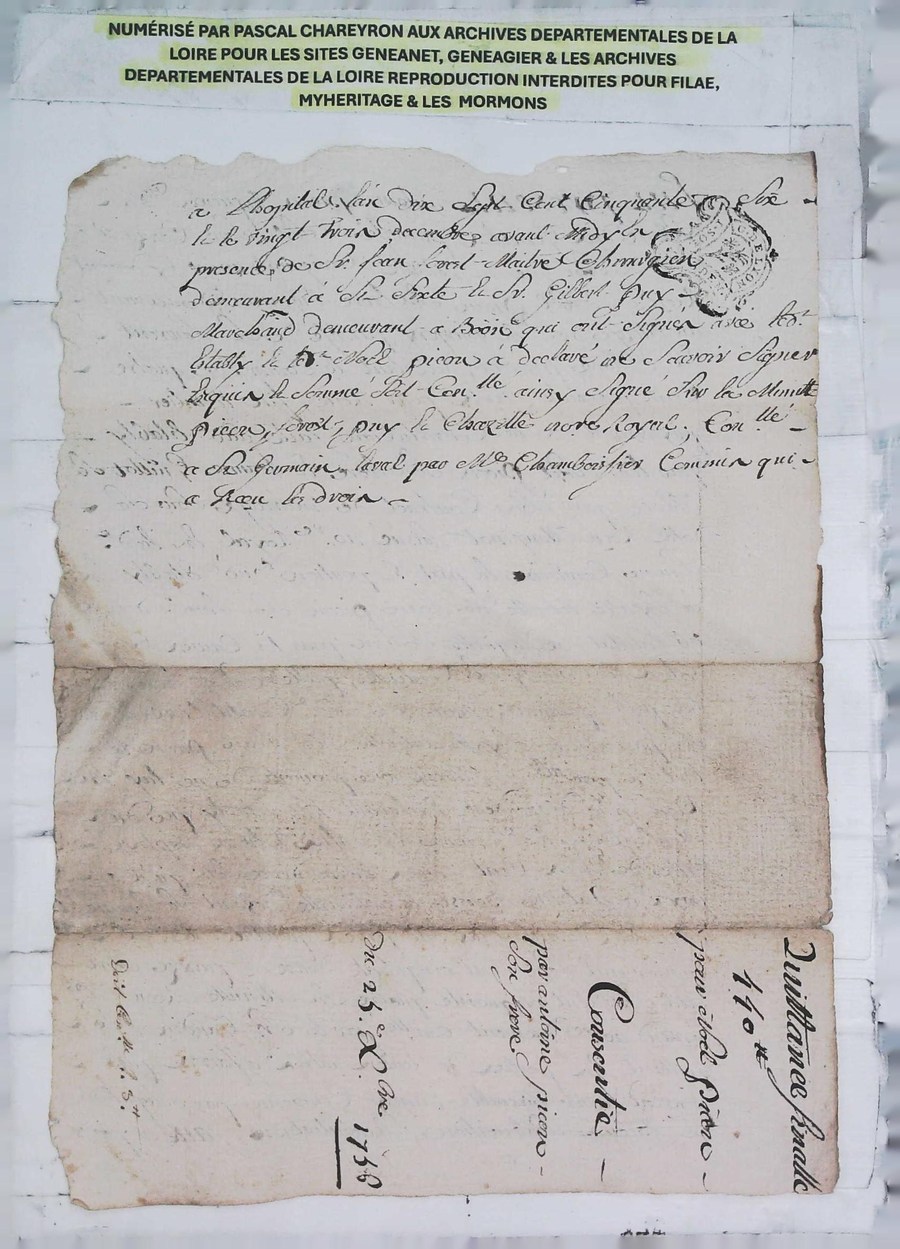 NUMÉRISÉ PAR PASCAL CHAREYRON AUX ARCHIVES DEPARTEMENTALES DE LA
LOIRE POUR LES SITES GENEANET, GENEAGIER & LES ARCHIVES
DEPARTEMENTALES DE LA LOIRE REPRODUCTION INTERDITES POUR FILAE,
MYHERITAGE & LES MORMONS
a Lhopital Lan dix Sept Cent Cinquante Six
le vingt trois decembre avant Midy En
presence de Sr. Jean Maitre Chirurgien
demeurant à St Sixte Et Sr. Gilbert puy
Marchand demeurant a Boën qui ont Signés avec led.t
Etably Et led.t Noël picon à declaré ne Scavoir Signer
Enquis Et Sommé Soit Con.llé ainsy Signé Sur la Minutte
picon, puy Et Chazelle no.re Royal, Con.llé
a St Germain laval par Mr. Commis qui
a Reçu les droits
Quittance finalle
110 ₶
par noël picon
Consentie
par antoine picon
Son frere
Du 23.e Xbre 1756